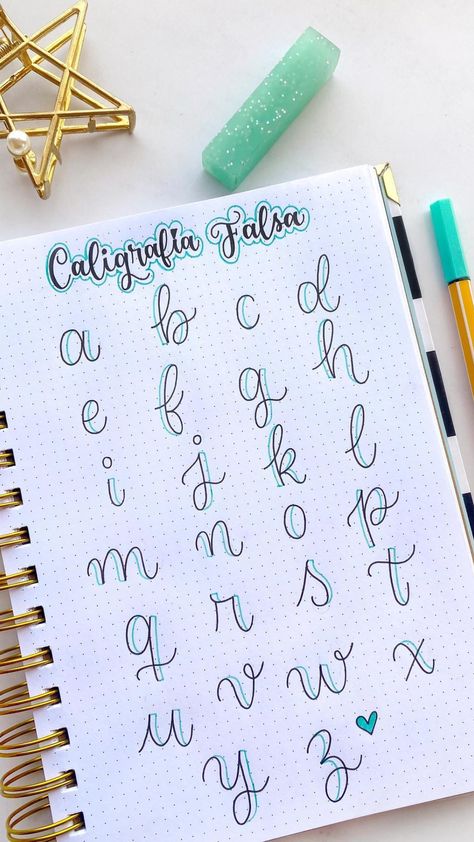 Caligrafia Falsa
a b c d
e f g h
i j k l
m n o p
q r s t
u v w x
y z